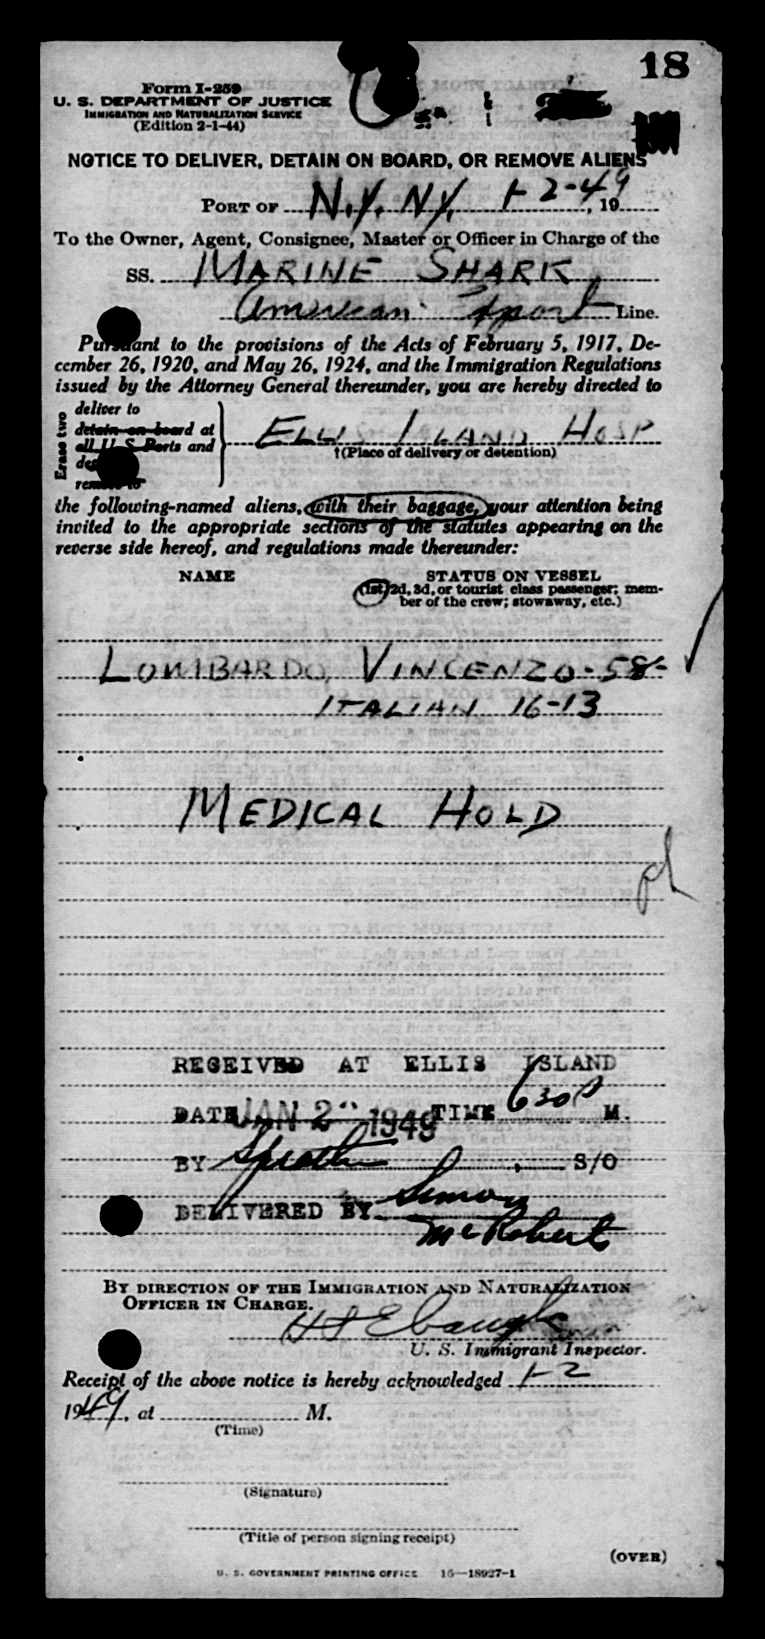 18
Form I-259
U. S. DEPARTMENT OF JUSTICE
IMMIGRATION AND NATURALIZATION SERVICE
(Edition 2-1-44)
NOTICE TO DELIVER, DETAIN ON BOARD, OR REMOVE ALIENS
PORT OF N.Y. N.Y. 1-2-49, 19
To the Owner, Agent, Consignee, Master or Officer in Charge of the
SS. MARINE SHARK
American Export Line.
Pursuant to the provisions of the Acts of February 5, 1917, De-
cember 26, 1920, and May 26, 1924, and the Immigration Regulations
issued by the Attorney General thereunder, you are hereby directed to
Erase two
deliver to
detain on board at
all U. S. Ports and
remove to
ELLIS ISLAND HOSP
†(Place of delivery or detention)
the following-named aliens, with their baggage, your attention being
invited to the appropriate sections of the statutes appearing on the
reverse side hereof, and regulations made thereunder:
NAME
STATUS ON VESSEL
(1st, 2d, 3d, or tourist class passenger; mem-
ber of the crew; stowaway, etc.)
LOMBARDO, VINCENZO - 58-
ITALIAN 16-13
MEDICAL HOLD
RECEIVED AT ELLIS ISLAND
DATE JAN 2 1949 TIME 630 P M.
BY S/O
DELIVERED BY Simon
McRoberts
BY DIRECTION OF THE IMMIGRATION AND NATURALIZATION
OFFICER IN CHARGE.
U. S. Immigrant Inspector.
Receipt of the above notice is hereby acknowledged 1-2
1949, at M.
(Time)
(Signature)
(Title of person signing receipt)
(OVER)
U. S. GOVERNMENT PRINTING OFFICE 16—18927-1